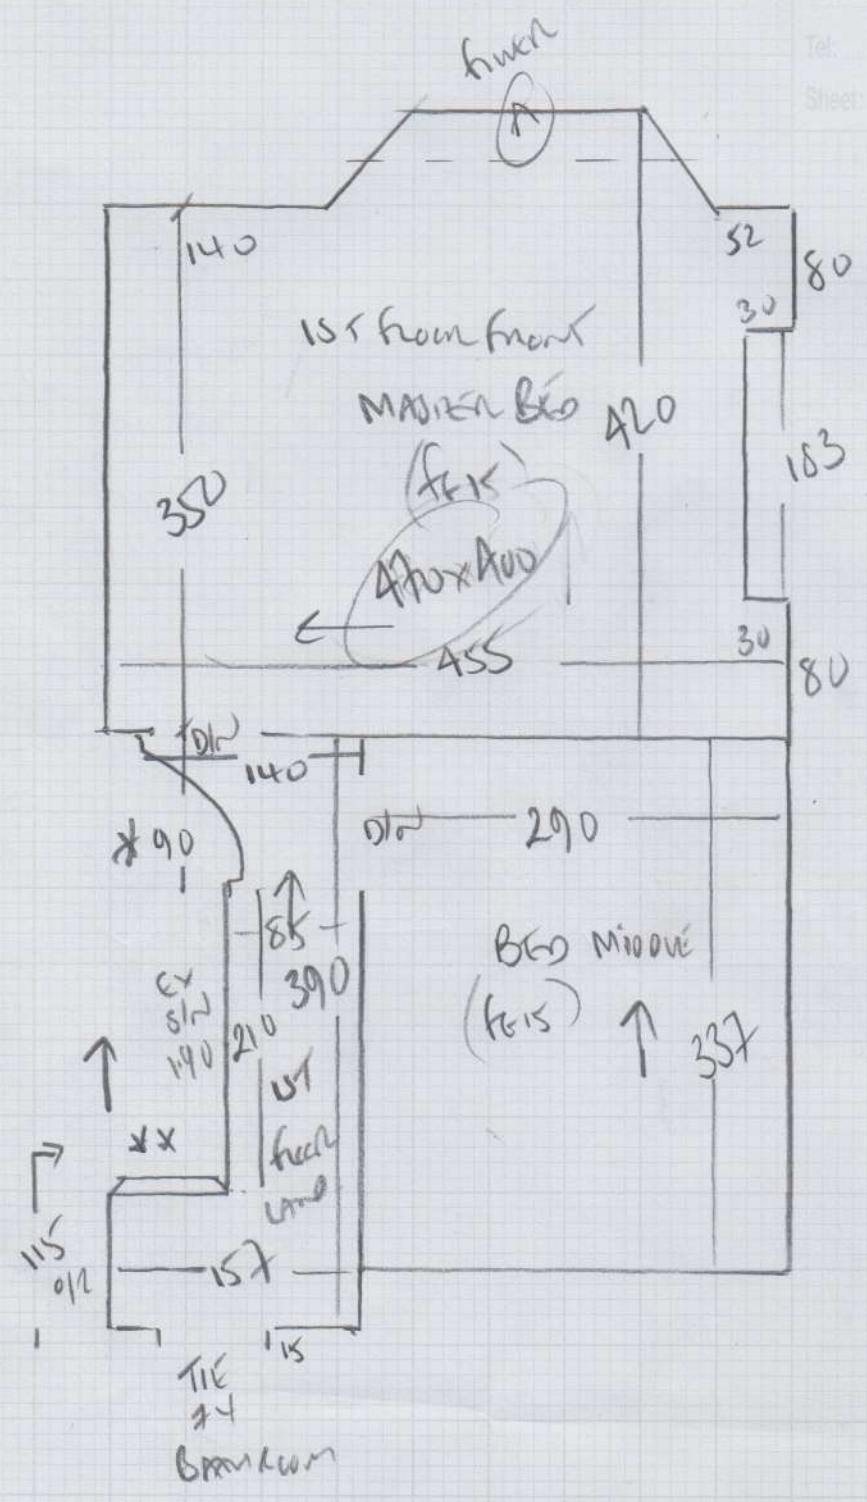 Tel:
Sheet:
140
52
80
30
1ST FLOOR FRONT
MASTER BED
420
183
(FE15)
350
470 x 400
30
455
80
D/W
140
D/W
290
* 90
85
390
BED MIDDLE
(FE15)
EX
S/W
190
210
337
1ST
FLOOR
LAND
**
115
O/R
157
15
TIE
BATHROOM